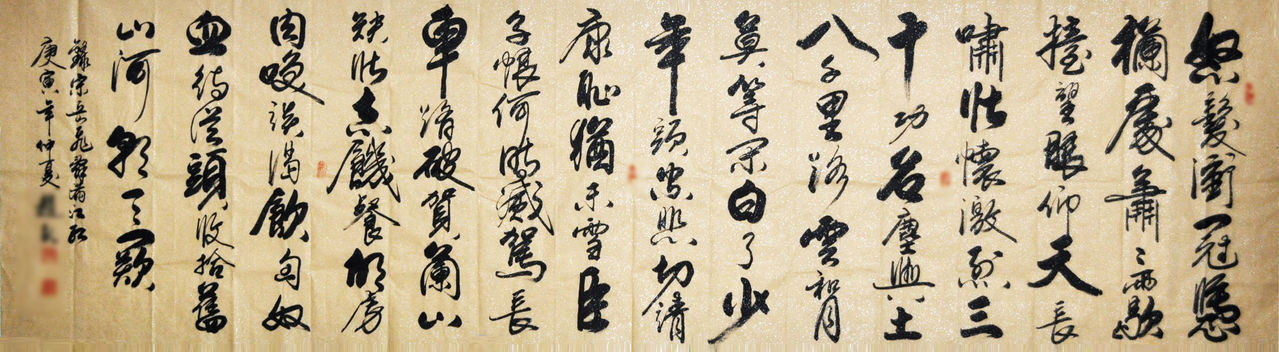 怒髮衝冠憑
欄處瀟瀟雨歇
擡望眼仰天長
嘯壯懷激烈三
十功名塵與土
八千里路雲和月
莫等閑白了少
年頭空悲切靖
康恥猶未雪臣
子恨何時滅駕長
車踏破賀蘭山
缺壯志饑餐胡虜
肉笑談渴飲匈奴
血待從頭收拾舊
山河朝天闕
錄宋岳飛詞滿江紅
庚寅年仲夏